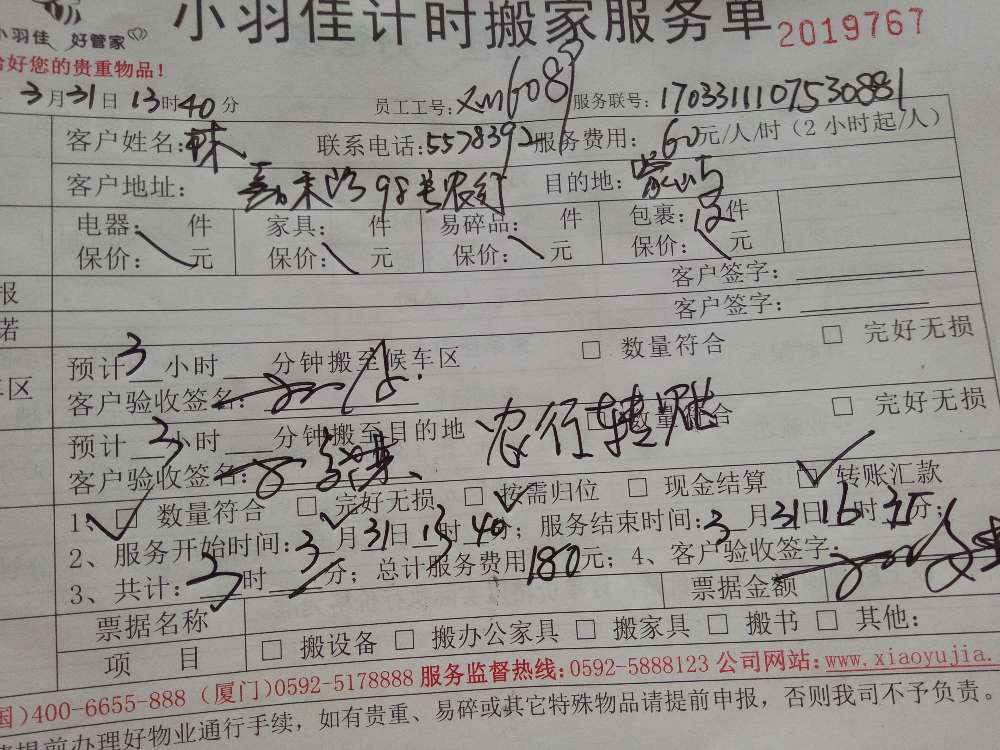 小羽佳计时搬家服务单 2019767
小羽佳 好管家
好您的贵重物品!
3月31日13时40分 员工工号: xm6081 服务联号: 17033111107530881
客户姓名: 林 联系电话: 5578392 服务费用: 60元/人/时(2小时起/人)
客户地址: 98号农行 目的地:
电器: 件 家具: 件 易碎品: 件 包裹: 12件
保价: 元 保价: 元 保价: 元 保价: 元
报 客户签字:
诺 客户签字:
预计3小时 分钟搬至候车区 □ 数量符合 □ 完好无损
车区 客户验收签名:
预计3小时 分钟搬至目的地 数量符合 □ 完好无损
客户验收签名: 农行转账
1、□ 数量符合 □ 完好无损 □ 按需归位 □ 现金结算 □ 转账汇款
2、服务开始时间: 3月31日13时40分; 服务结束时间: 3月31日16时 分;
3、共计: 3时 分; 总计服务费用180元; 4、客户验收签字:
票据名称 票据金额
项 目 □ 搬设备 □ 搬办公家具 □ 搬家具 □ 搬书 □ 其他:
国)400-6655-888(厦门)0592-5178888 服务监督热线: 0592-5888123 公司网站: www.xiaoyujia.
提前办理好物业通行手续,如有贵重、易碎或其它特殊物品请提前申报,否则我司不予负责。